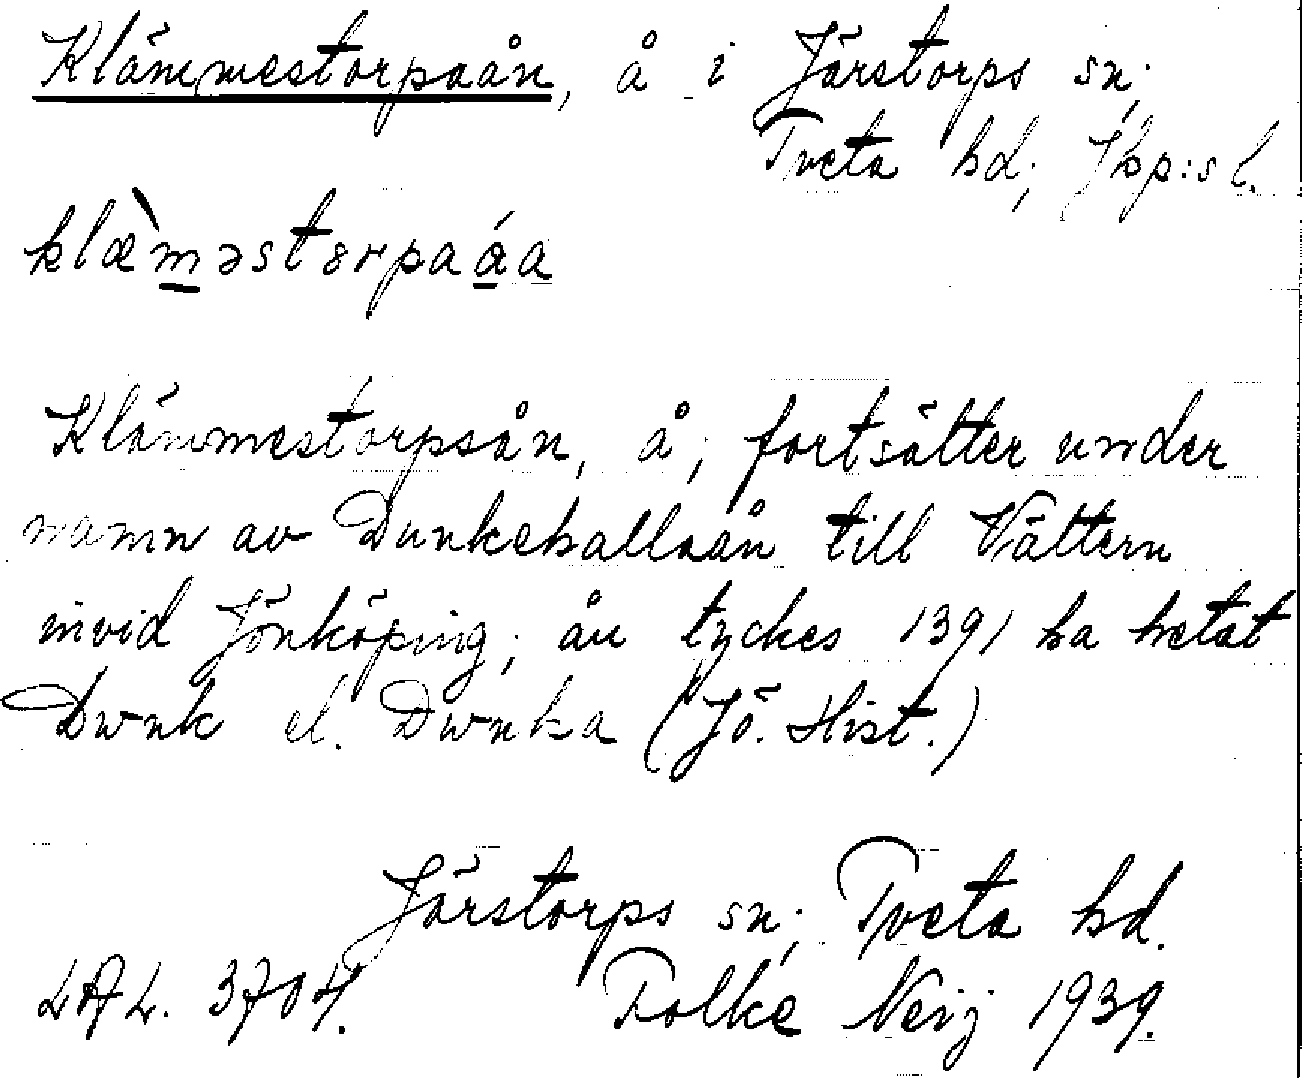 Klämmestorpaån, å i Järstorps sn;
Tveta hd; Jkp:s l.
klæ̀məstorpaáa
Klämmestorpsån, å; fortsätter under
namn av Dunkehallaån till Vättern
invid Jönköping; ån tyckes 1391 ha hetat
Dunk el. Dunka (Jö. Hist.)
Järstorps sn; Tveta hd.
LAL. 3704. Folke Neij 1939.